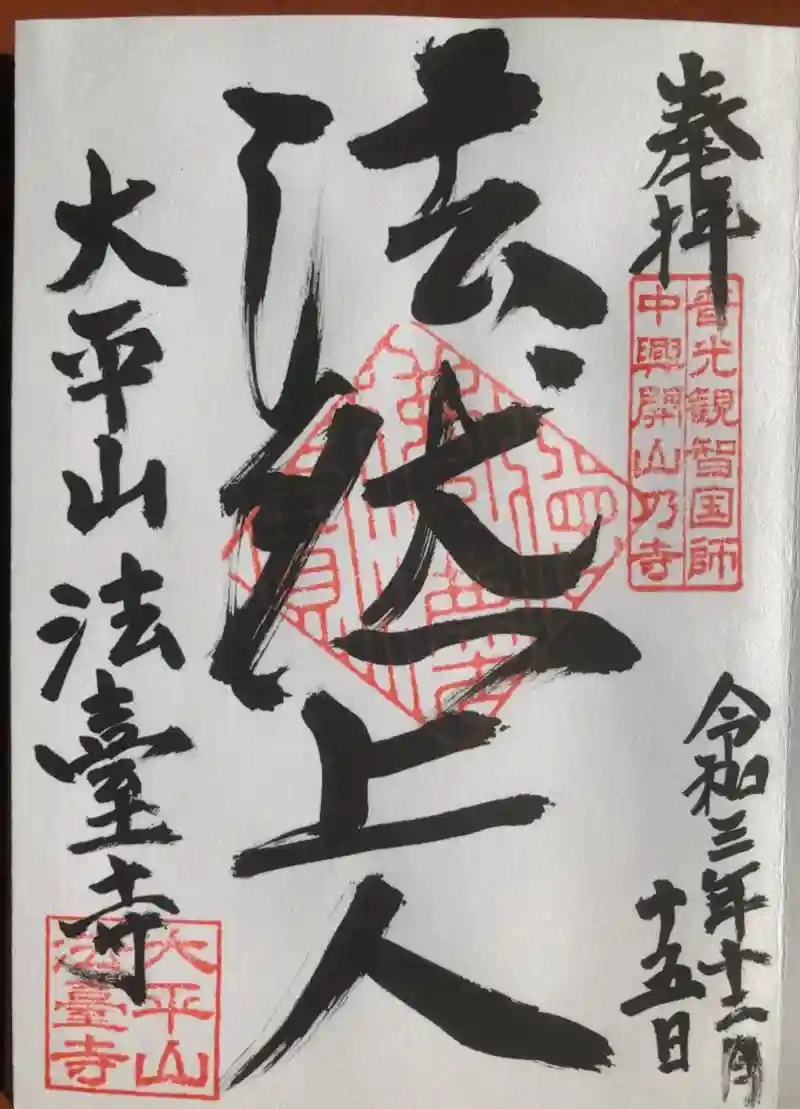 奉拝
普光観智国師
中興開山乃寺
令和三年十二月
十五日
法然上人
大平山
法臺寺
大平山
法臺寺